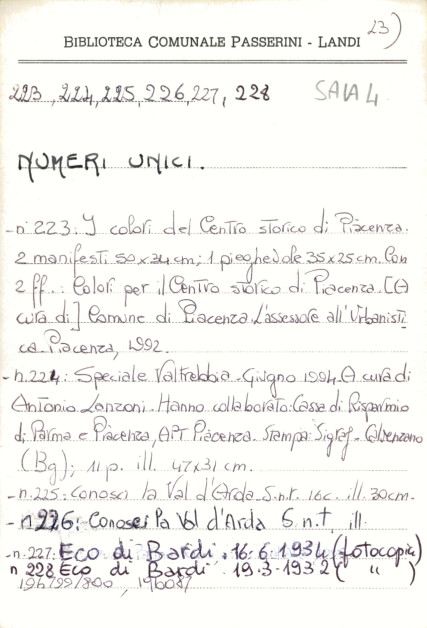 23)
BIBLIOTECA COMUNALE PASSERINI - LANDI
223, 224, 225, 226, 227, 228 SALA 4
NUMERI UNICI.
- n° 223: I colori del Centro storico di Piacenza.
2 manifesti 50x34 cm; 1 pieghevole 35x25 cm. Con
2 ff.: Colori per il Centro storico di Piacenza. [A
cura di] Comune di Piacenza. L'assessore all'Urbanisti
ca. Piacenza, 1992.
- n. 224: Speciale Valtrebbia. Giugno 1994. A cura di
Antonio Lanzoni. Hanno collaborato: Cassa di Risparmio
di Parma e Piacenza, APT Piacenza. Stampa: Sigraf - Calvenzano
(Bg); 11 p. ill. 47x31 cm.
- n. 225: Conosci la Val d'Arda. S.n.t. 16c. ill. 30cm.
- n. 226: Conosci la Val d'Arda S.n.t, ill.
- n. 227: Eco di Bardi. 16.6.1934 (fotocopia)
n 228 Eco di Bardi 19.3.1932 ( " )